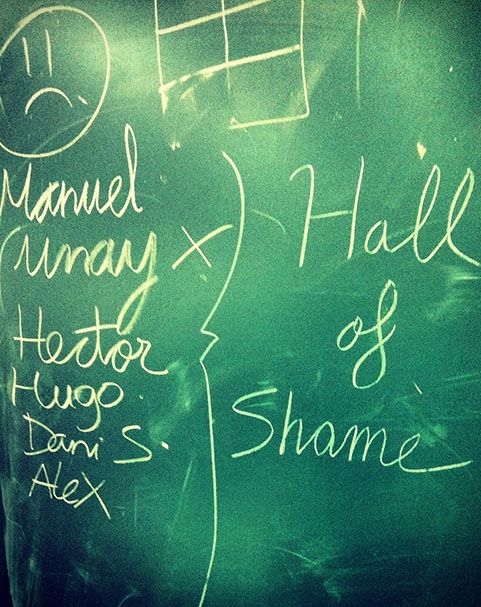 Manuel
Unay x
Hector
Hugo.
Dani S.
Alex
Hall
of
Shame